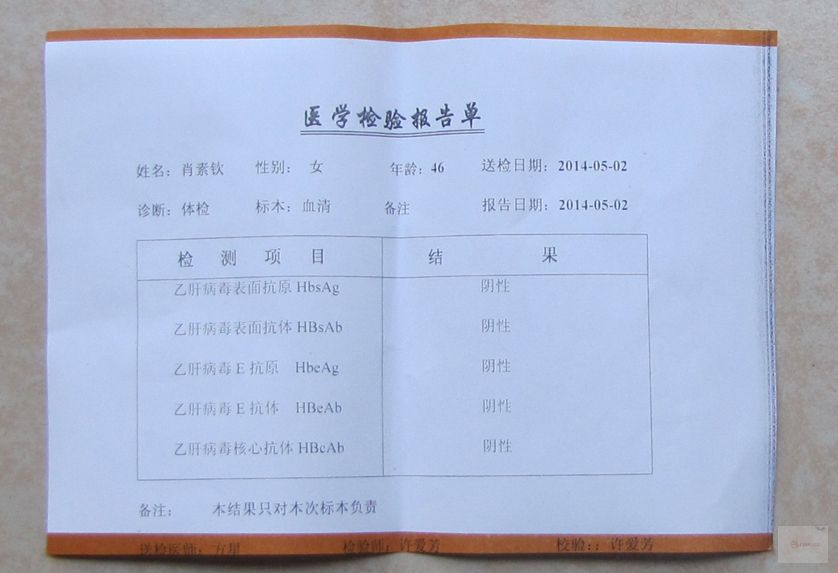 医学检验报告单
姓名：肖素钦 性别： 女 年龄：46 送检日期：2014-05-02
诊断：体检 标本：血清 备注 报告日期：2014-05-02
检 测 项 目 结 果
乙肝病毒表面抗原 HbsAg 阴性
乙肝病毒表面抗体 HBsAb 阴性
乙肝病毒 E 抗原 HbeAg 阴性
乙肝病毒 E 抗体 HBeAb 阴性
乙肝病毒核心抗体 HBcAb 阴性
备注： 本结果只对本次标本负责
送检医师：方星 检验师：许爱芳 校验：：许爱芳